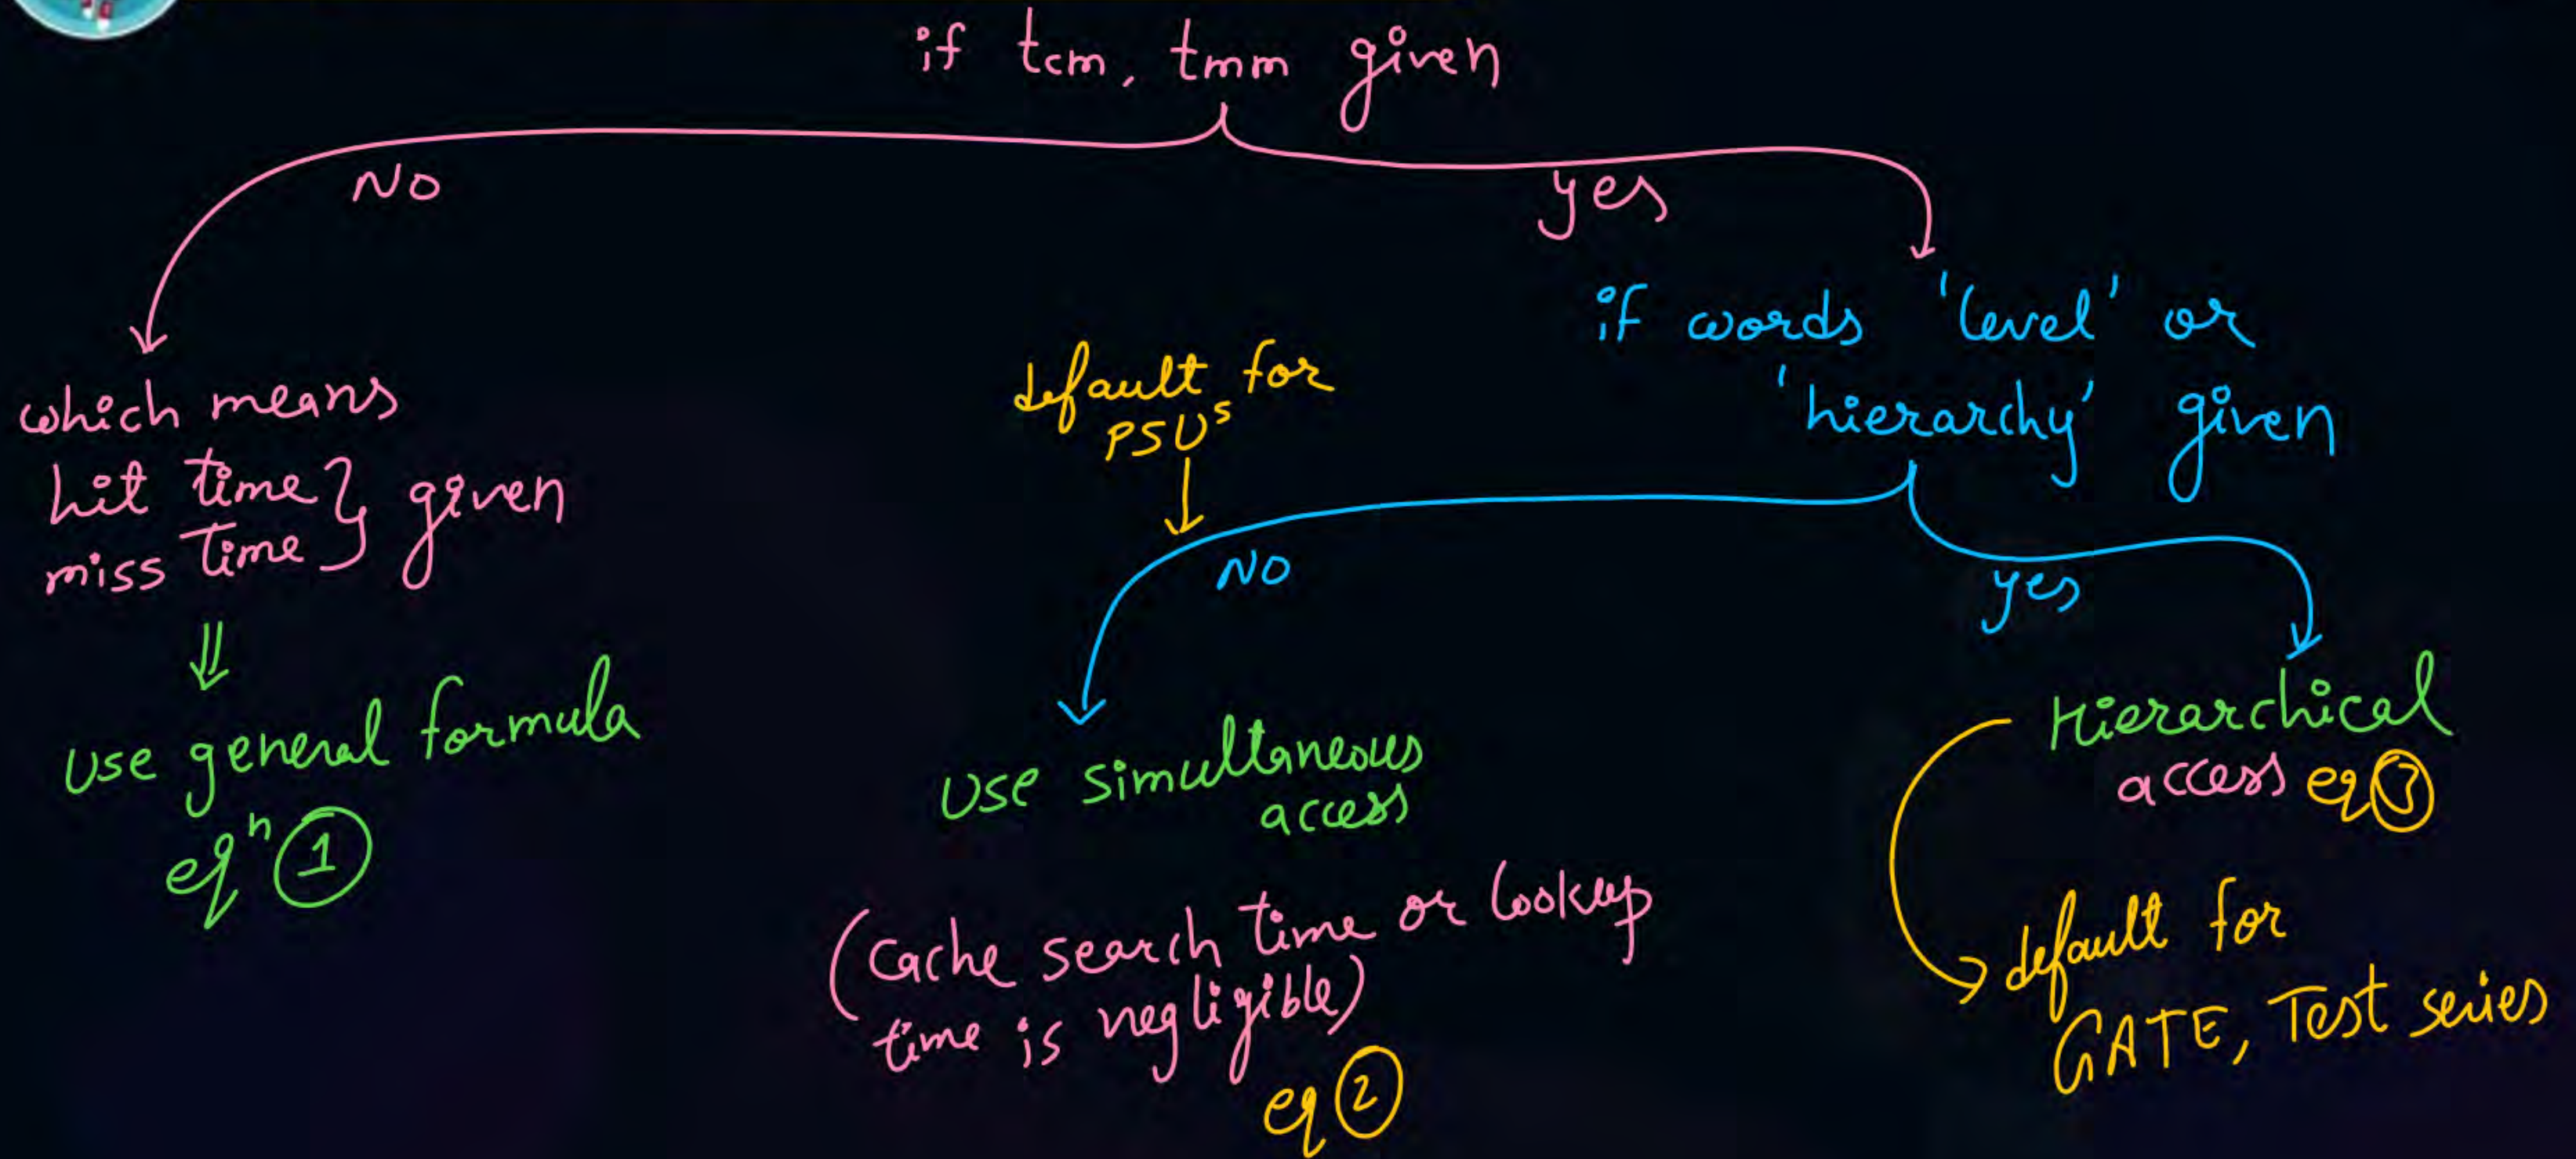 if tcm, tmm given
NO
yes
which means
hit time } given
miss time
⇓
Use general formula
eqⁿ ①
if words 'level' or
'hierarchy' given
default for
PSUs
NO
yes
Use simultaneous
access
(Cache search time or lookup
time is negligible)
eq ②
Hierarchical
access eq ③
default for
GATE, Test series